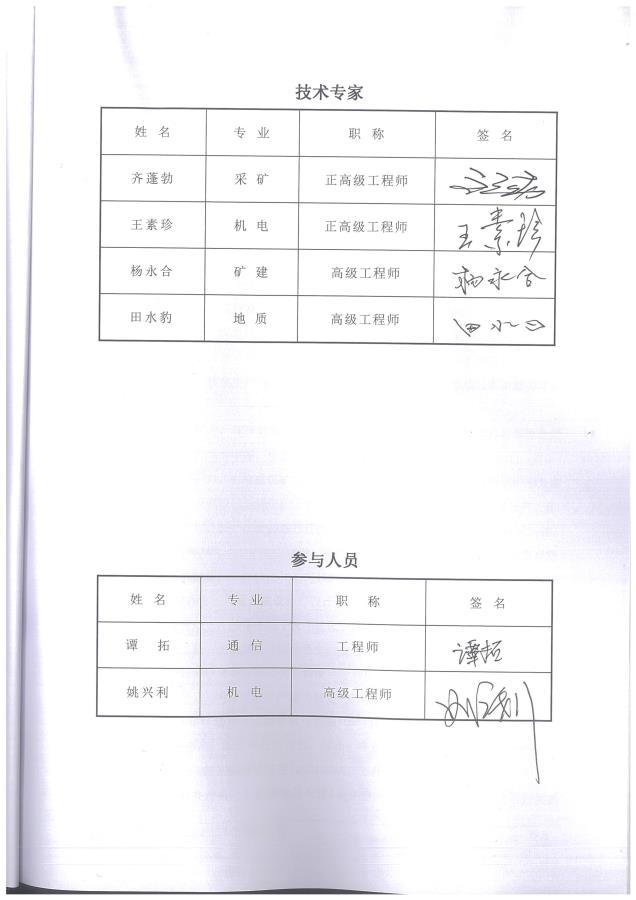 技术专家
姓 名 专 业 职 称 签 名
齐蓬勃 采 矿 正高级工程师
王素珍 机 电 正高级工程师 王素珍
杨永合 矿 建 高级工程师 杨永合
田水豹 地 质 高级工程师
参与人员
姓 名 专 业 职 称 签 名
谭 拓 通 信 工程师 谭拓
姚兴利 机 电 高级工程师